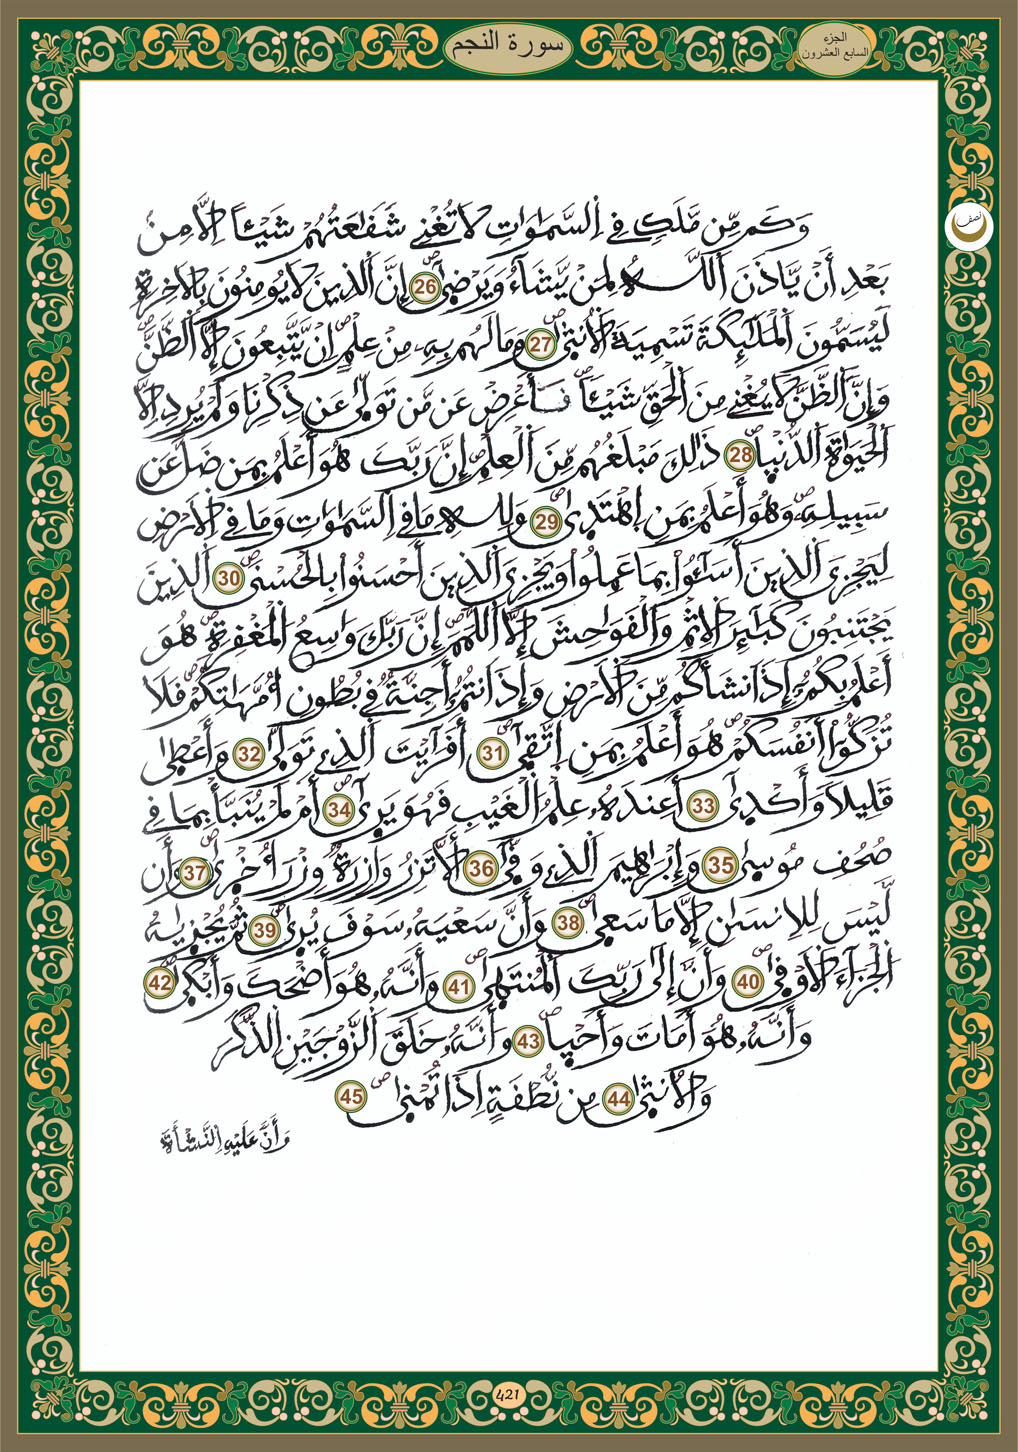 سورة النجم
الجزء
السابع العشرون
نصف
وَكَم مِّن مَّلَكٍ فِي اِلسَّمَٰوَٰتِ لَا تُغْنِے شَفَٰعَتُهُمْ شَيْـًٔا اِلَّا مِنۢ
بَعْدِ أَنْ يَّاذَنَ اَللَّهُ لِمَنْ يَّشَآءُ وَيَرْضَىٰٓ 26 إِنَّ اَلذِينَ لَا يُومِنُونَ بِالَاخِرَةِ
لَيُسَمُّونَ اَلْمَلَٰٓئِكَةَ تَسْمِيَةَ اَلُانثَىٰ 27 وَمَا لَهُم بِهِۦ مِنْ عِلْمٍ اِنْ يَّتَّبِعُونَ إِلَّا اَلظَّنَّ
وَإِنَّ اَلظَّنَّ لَا يُغْنِے مِنَ اَلْحَقِّ شَيْـًٔا فَأَعْرِضْ عَن مَّن تَوَلَّىٰ عَن ذِكْرِنَا وَلَمْ يُرِدِ اِلَّا
اَلْحَيَوٰةَ اَلدُّنْيَا 28 ذَٰلِكَ مَبْلَغُهُم مِّنَ اَلْعِلْمِ إِنَّ رَبَّكَ هُوَ أَعْلَمُ بِمَن ضَلَّ عَن
سَبِيلِهِۦ وَهُوَ أَعْلَمُ بِمَنِ اِهْتَدَىٰ 29 وَلِلهِ مَا فِي اِلسَّمَٰوَٰتِ وَمَا فِي اِلَارْضِ
لِيَجْزِيَ اَلذِينَ أَسَٰٓـُٔواْ بِمَا عَمِلُواْ وَيَجْزِيَ اَلذِينَ أَحْسَنُواْ بِالْحُسْنَى 30 اَلذِينَ
يَجْتَنِبُونَ كَبَٰٓئِرَ اَلِاثْمِ وَالْفَوَٰحِشَ إِلَّا اَللَّمَمَ إِنَّ رَبَّكَ وَٰسِعُ اُلْمَغْفِرَةِ هُوَ
أَعْلَمُ بِكُمُۥٓ إِذَ اَنشَأَكُم مِّنَ اَلَارْضِ وَإِذَ اَنتُمُۥٓ أَجِنَّةٌ فِي بُطُونِ أُمَّهَٰتِكُمْ فَلَا
تُزَكُّوٓاْ أَنفُسَكُمْ هُوَ أَعْلَمُ بِمَنِ اِتَّقَىٰٓ 31 أَفَرَٰٓيْتَ اَلذِے تَوَلَّىٰ 32 وَأَعْطَىٰ
قَلِيلًا وَأَكْدَىٰٓ 33 أَعِندَهُۥ عِلْمُ اُلْغَيْبِ فَهُوَ يَرَىٰٓ 34 أَمْ لَمْ يُنَبَّأْ بِمَا فِي
صُحُفِ مُوسَىٰ 35 وَإِبْرَٰهِيمَ اَلذِے وَفَّىٰٓ 36 أَلَّا تَزِرُ وَازِرَةٌ وِزْرَ أُخْرَىٰ 37 وَأَن
لَّيْسَ لِلِانسَٰنِ إِلَّا مَا سَعَىٰ 38 وَأَنَّ سَعْيَهُۥ سَوْفَ يُرَىٰ 39 ثُمَّ يُجْزَيٰهُ
اُلْجَزَآءَ اَلَاوْفَىٰ 40 وَأَنَّ إِلَىٰ رَبِّكَ اَلْمُنتَهَىٰ 41 وَأَنَّهُۥ هُوَ أَضْحَكَ وَأَبْكَىٰ 42
وَأَنَّهُۥ هُوَ أَمَاتَ وَأَحْيَا 43 وَأَنَّهُۥ خَلَقَ اَلزَّوْجَيْنِ اِلذَّكَرَ
وَالُانثَىٰ 44 مِن نُّطْفَةٍ اِذَا تُمْنَىٰ 45
وَأَنَّ عَلَيْهِ اِلنَّشْأَةَ
421